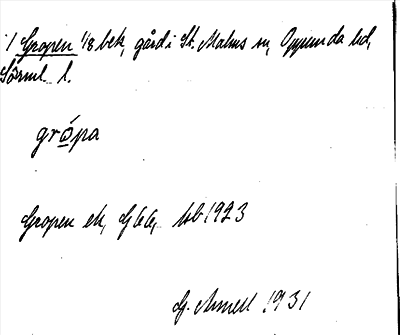 1 Gropen 1/8 bek, gård i St. Malms sn, Oppunda hd,
Sörml. l.
gró̲pa
Gropen ek, G66, kb 1923
G. 1931